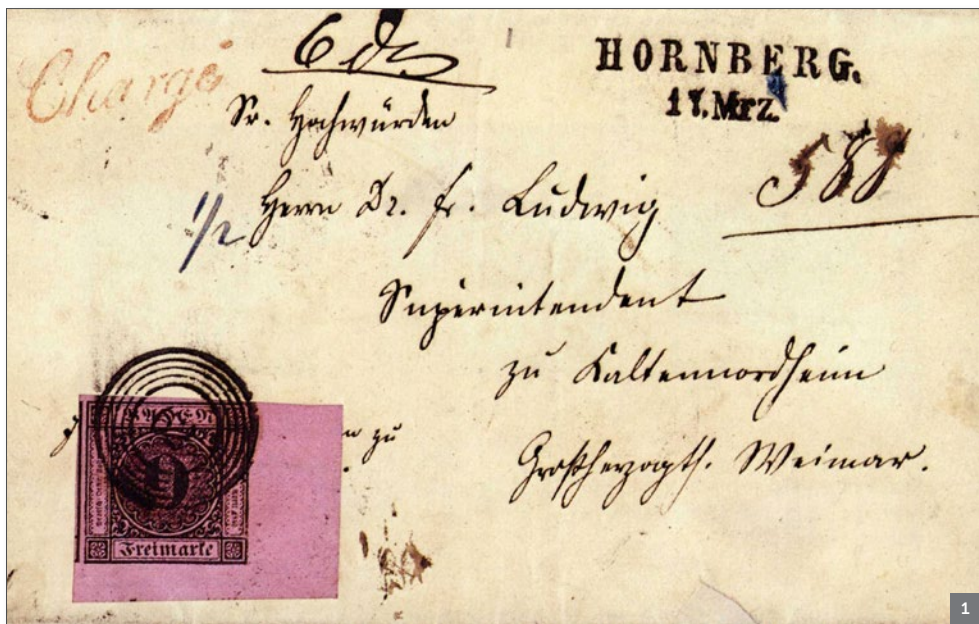 Chargé
HORNBERG.
17. Mrz.
Sr. Hochwürden
588
1/2
Herrn Dr. fr. Ludwig
Superintendent
zu Kaltennordheim
Großherzogth. Weimar.
zu
BADEN
9
Freimarke
1